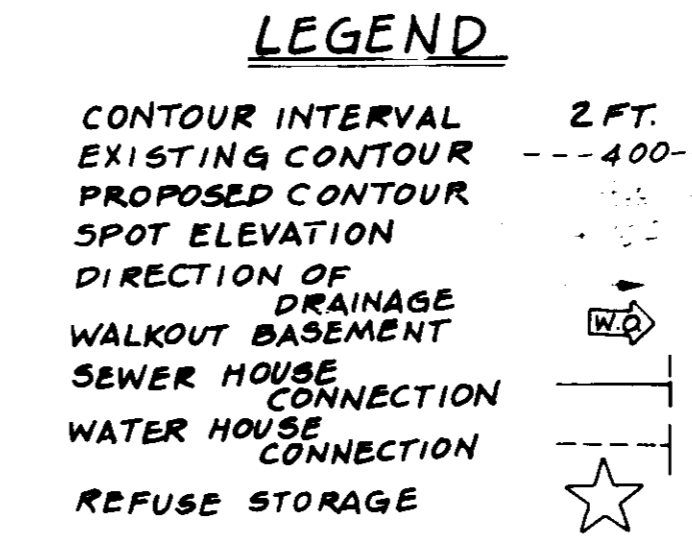 LEGEND
CONTOUR INTERVAL 2 FT.
EXISTING CONTOUR ---400-
PROPOSED CONTOUR
SPOT ELEVATION
DIRECTION OF
DRAINAGE
WALKOUT BASEMENT W.O.
SEWER HOUSE
CONNECTION
WATER HOUSE
CONNECTION
REFUSE STORAGE